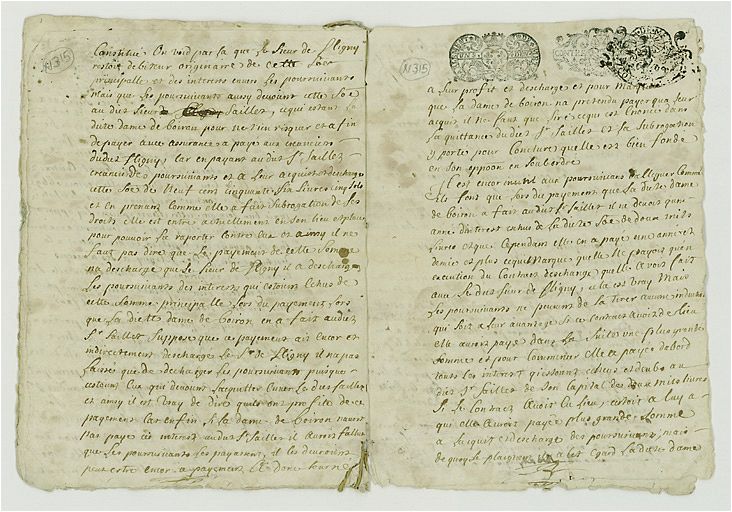 N315
Constitué. On void par la que le sieur de fligny
restoit debiteur originaire de cette Soe
principalle et des interets envers les poursuivants
Mais que les poursuivants aussy devoient cette Soe
au dit sieur Saillet, ce qui estant la
dite dame de boiron pour ne rien risquer et afin
de payer avec assurance a payé aux creanciers
dudit fligny, car en payant audit Sr Saillet
creancier des poursuivants et a leur acquit et descharge
cette Soe de Neuf cens cinquante six Livres cinq sols
et en prenant Comme elle a fait Subrogation de ses
droits elle est entré actuellement en son lieu et place
pour pouvoir la reporter contre eux et ainsy il ne
faut pas dire que le payement de cette Somme
na descharge que le Sieur de fligny il a descharge
les poursuivants des interets qui estoient Echus de
cette Somme principalle Lors du payement Lors
que la ditte dame de boiron en a fait audit
Sr Saillet Suppose que ce payement ait Encor et
indirectement descharge le Sr de fligny il na pas
laisse que de decharge les poursuivants puisque
estoient Eux qui devoient sacquitter Envers le dit Saillet
et ainsy il est vray de dire quils ont profité de ce
payement Car enfin Si la dame de boiron navoit
pas payé ces interets audit Sr Saillet il auroit fallu
que les poursuivants les payassent, il les devroient
peut estre encor a payement Ce donc tourne
N315
a son profit et descharge et pour
que la dame de boiron na pretendu payer qua leur
acquit il ne faut que lire ce qui est Enoncé dans
la quittance dudit Sr Saillet et la Subrogation
y porté pour Conclure quelle est bien fondé
en son opposition
Il est encor inutil aux poursuivants dalleguer Comme
ils font que lors du payement que la dite dame
de boiron a fait audit Saillet il ne devoit quune
année dinterest echus de la dite Soe de deux mils
livres et que Cependant elle en a payé une année et
demie et plus ce qui marque quelle ne payoit quen
execution du Contract descharge quelle avoit fait
avec le dit sieur de fligny, cela est vray Mais
les poursuivants ne peuvent en tirer aucune induction
qui soit a leur avantage Si ce contract avoit eu lieu
elle auroit payé dans la Suite une plus grande
Somme et pour Commencer elle a payée dabord
tous les interest qui estoient echus et deubs au
dit Sr Saillet de son Capital des deux mils livres
Si le Contract avoit eu lieu
quelle auroit payé plus grande Somme
a lacquit et descharge des poursuivants, mais
de quoy se plaignent a cet Egard la dite dame